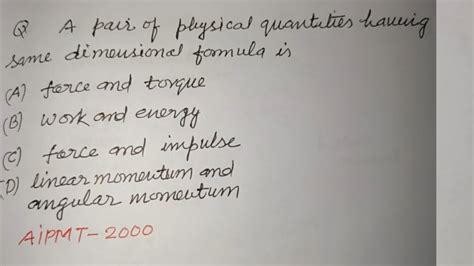 Q A pair of physical quantities having
same dimensional formula is
(A) force and torque
(B) work and energy
(C) force and impulse
(D) linear momentum and
angular momentum
AiPMT-2000